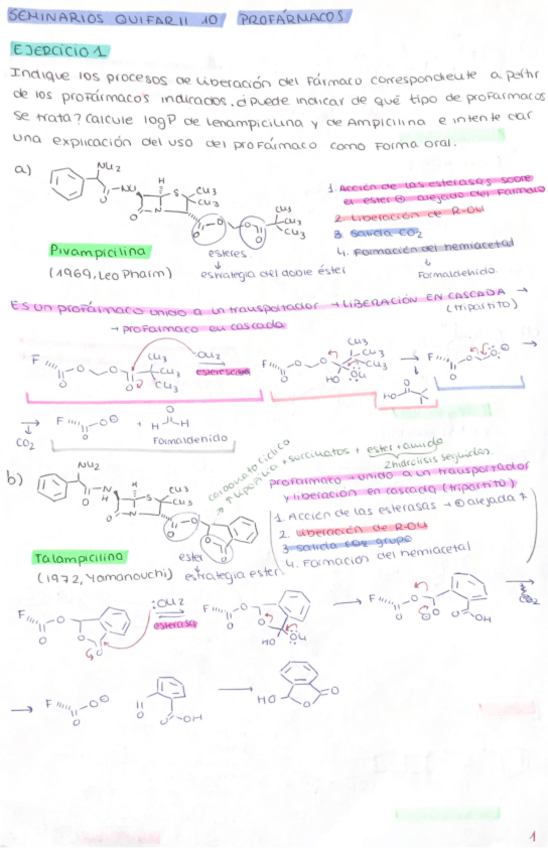 SEMINARIOS QUIFAR II 10 PROFÁRMACOS
EJERCICIO 1
Indique los procesos de liberación del fármaco correspondiente a partir
de los profármacos indicados. ¿Puede indicar de qué tipo de profármacos
se trata? Calcule logP de Lenampicilina y de Ampicilina e intente dar
una explicación del uso del profármaco como forma oral.
a)
Pivampicilina
(1969, Leo Pharm)
ésteres
estrategia del doble éster
1. Acción de las esterasas sobre
el ester ⊕ alejado del Fármaco
2. Liberación de R-OH
3. Salida CO2
4. Formación del hemiacetal
Formaldehido.
Es un profármaco unido a un transportador → LIBERACIÓN EN CASCADA →
(tripartito)
→ profármaco en cascada
esterasas
CO2
Formaldehido
b)
carbonato cíclico
+ succinatos + ester + amida
2 hidrólisis seguidas.
profármaco → unido a un transportador
y liberación en cascada (tripartito)
1. Acción de las esterasas → ⊕ alejada
2. Liberación de R-OH
3. salida CO2 grupo
4. Formación del hemiacetal
Talampicilina
(1972, Yamanouchi)
ester
estrategia ester
:OH2
esterasa
CO2
1